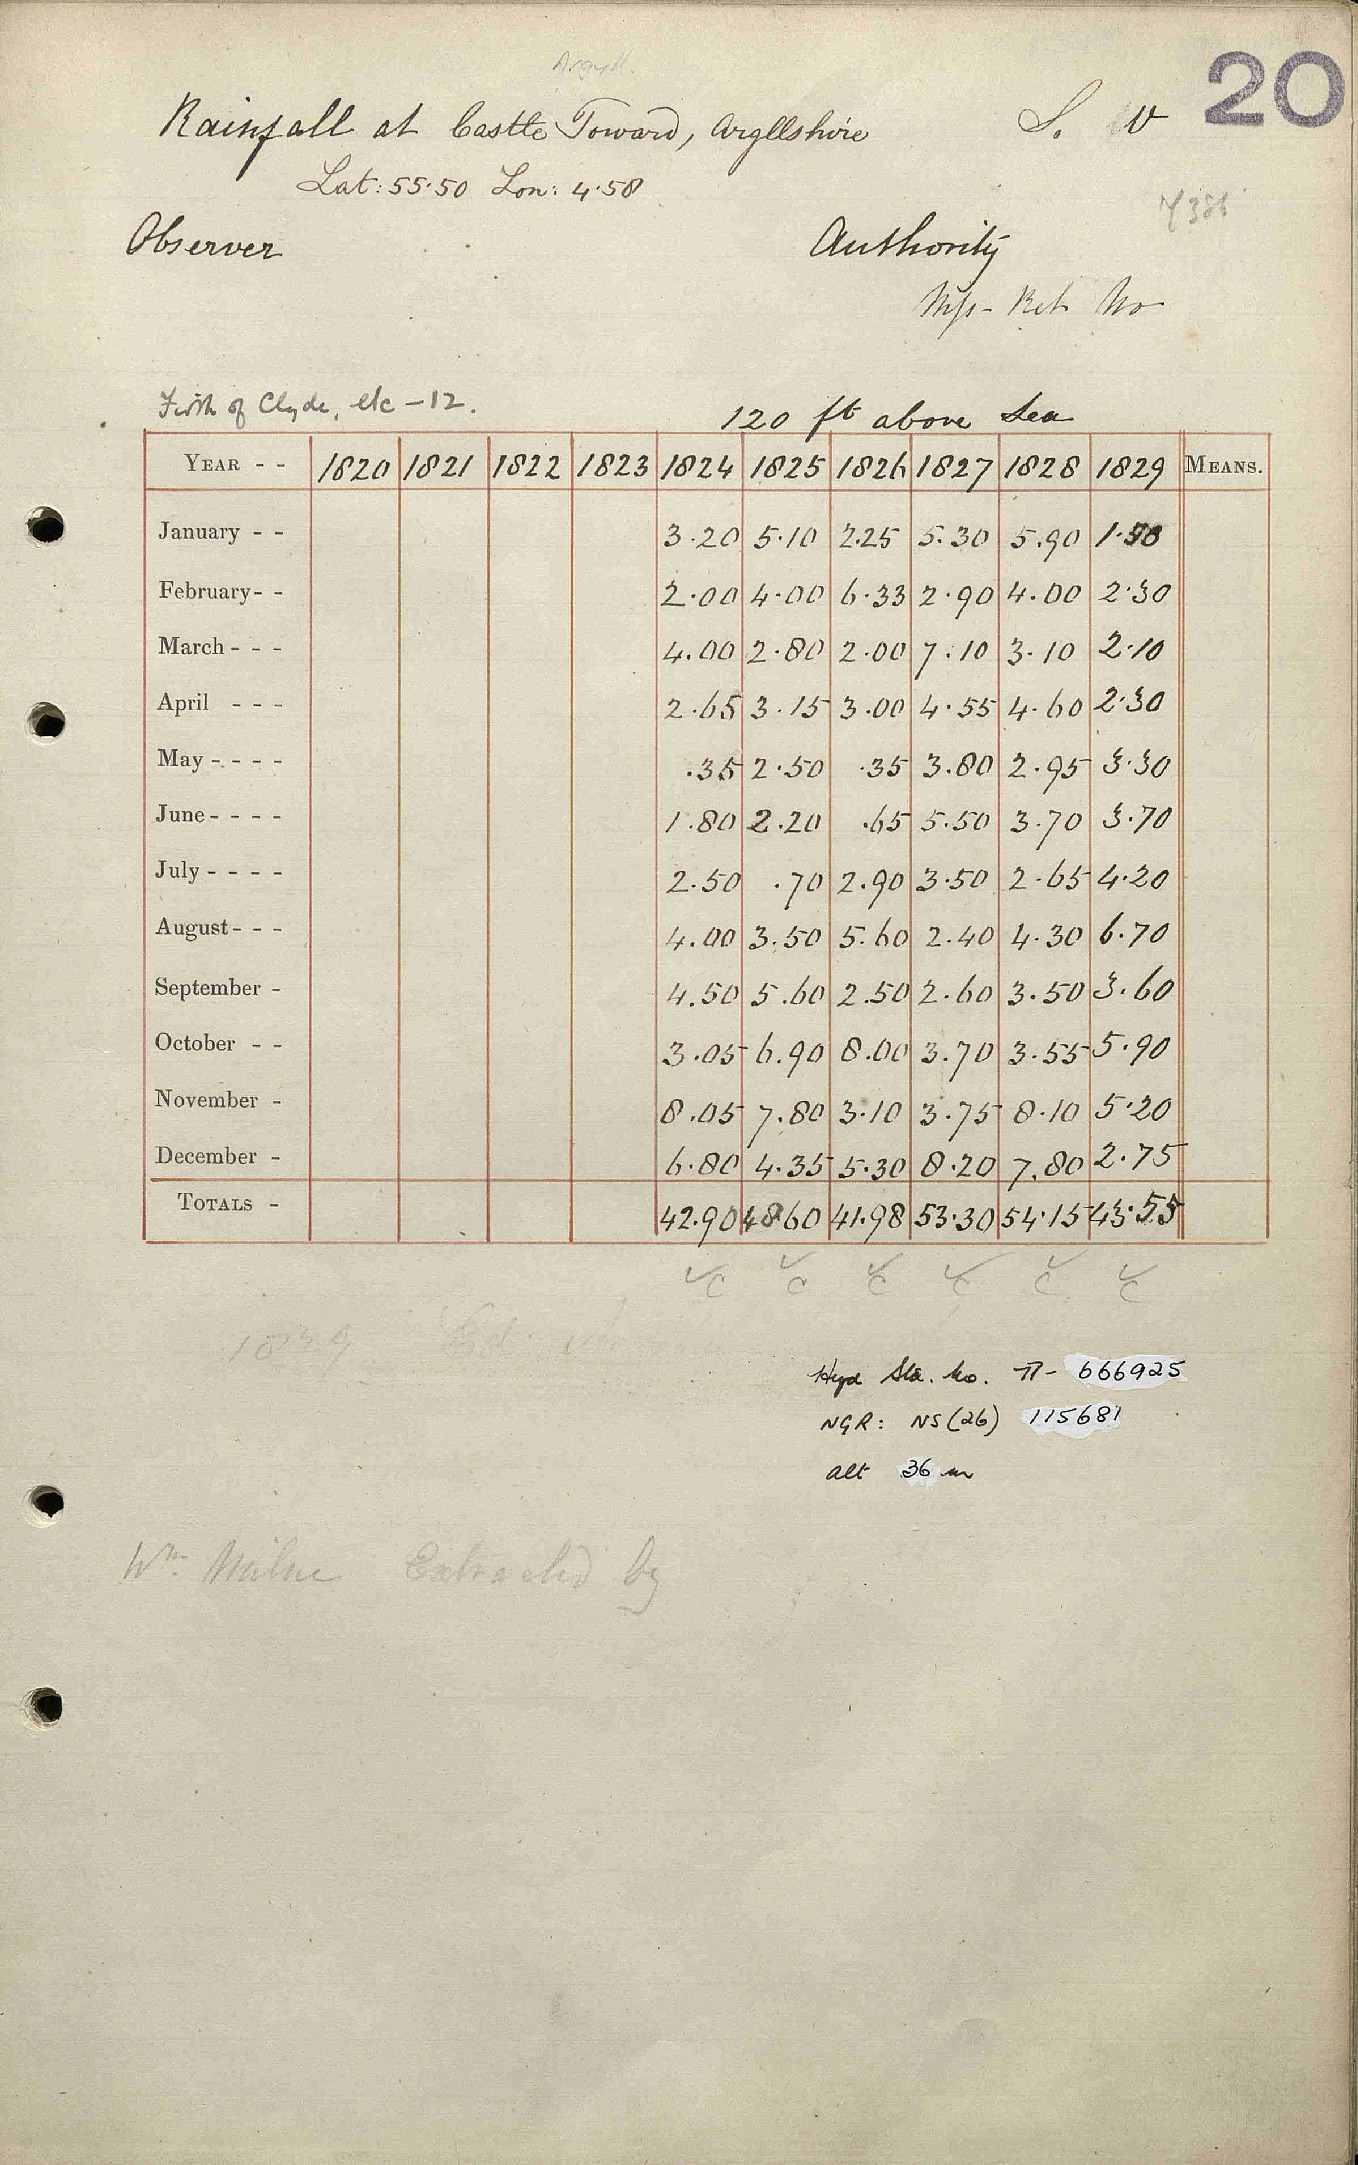 Argyll.
20
Rainfall at Castle Toward, Argllshire
S. V
Lat: 55.50 Lon: 4.58
Observer
Authority
Mss. Ret No
Firth of Clyde, etc - 12.
120 ft above Sea
YEAR - - 1820 1821 1822 1823 1824 1825 1826 1827 1828 1829 MEANS.
January - - 3.20 5.10 2.25 5.30 5.90 1.50
February - - 2.00 4.00 6.33 2.90 4.00 2.30
March - - - 4.00 2.80 2.00 7.10 3.10 2.10
April - - - 2.65 3.15 3.00 4.55 4.60 2.30
May - - - - .35 2.50 .35 3.80 2.95 3.30
June - - - - 1.80 2.20 .65 5.50 3.70 3.70
July - - - - 2.50 .70 2.90 3.50 2.65 4.20
August - - - 4.00 3.50 5.60 2.40 4.30 6.70
September - 4.50 5.60 2.50 2.60 3.50 3.60
October - - 3.05 6.90 8.00 3.70 3.55 5.90
November - 8.05 7.80 3.10 3.75 8.10 5.20
December - 6.80 4.35 5.30 8.20 7.80 2.75
TOTALS - 42.90 48.60 41.98 53.30 54.15 43.55
✓c ✓c ✓c ✓c ✓c ✓c
1829
Hyd Sta. No. 666925
NGR: NS(26) 115681
alt 36 m
Wm. Milne Extracted by